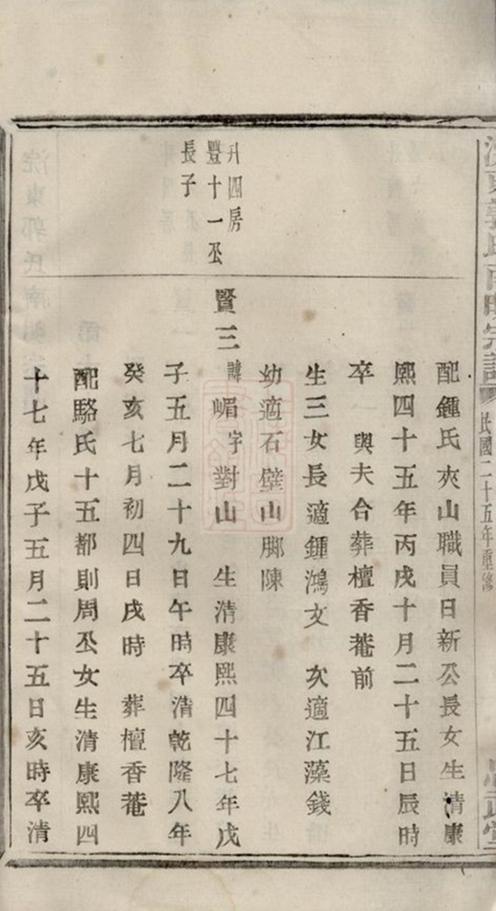 民國二十五年重修
配鍾氏夾山職員日新公長女生清康
熙四十五年丙戌十月二十五日辰時
卒 與夫合葬檀香菴前
生三女長適鍾鴻文 次適江藻錢
幼適石壁山腳陳
升四房
豐十一公
長子
賢三 諱嵋字對山 生清康熙四十七年戊
子五月二十九日午時卒清乾隆八年
癸亥七月初四日戌時 葬檀香菴
配駱氏十五都則周公女生清康熙四
十七年戊子五月二十五日亥時卒清